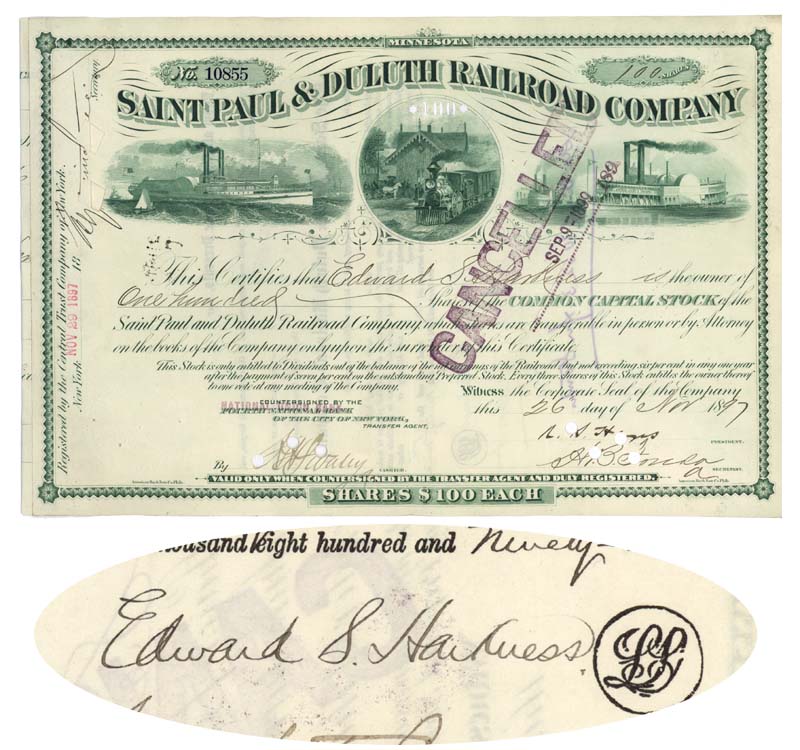 MINNESOTA
No. 10855
100 SHARES
SAINT PAUL & DULUTH RAILROAD COMPANY
*100*
CANCELLED
SEP 9 - 1899
This Certifies that Edward S. Harkness is the owner of
One hundred Shares of the COMMON CAPITAL STOCK of the
Saint Paul and Duluth Railroad Company, which shares are transferable in person or by Attorney
on the books of the Company only upon the surrender of this Certificate.
This Stock is only entitled to Dividends out of the balance of the net earnings of the Railroad, and not exceeding six per cent in any one year
after the payment of seven per cent on the outstanding Preferred Stock. Every three shares of this Stock entitles the owner thereof
to one vote at any meeting of the Company.
Witness the Corporate Seal of the Company
this 26 day of Nov 1897
COUNTERSIGNED BY THE
FOURTH NATIONAL BANK
OF THE CITY OF NEW YORK,
TRANSFER AGENT,
By
CASHIER.
PRESIDENT.
SECRETARY.
American Bank Note Co. Phila.
VALID ONLY WHEN COUNTERSIGNED BY THE TRANSFER AGENT AND DULY REGISTERED.
American Bank Note Co. Phila.
SHARES $100 EACH
Registered by the Central Trust Company of New York.
New York NOV 29 1897 18
Secretary
thousand eight hundred and Ninety-
Edward S. Harkness
LS